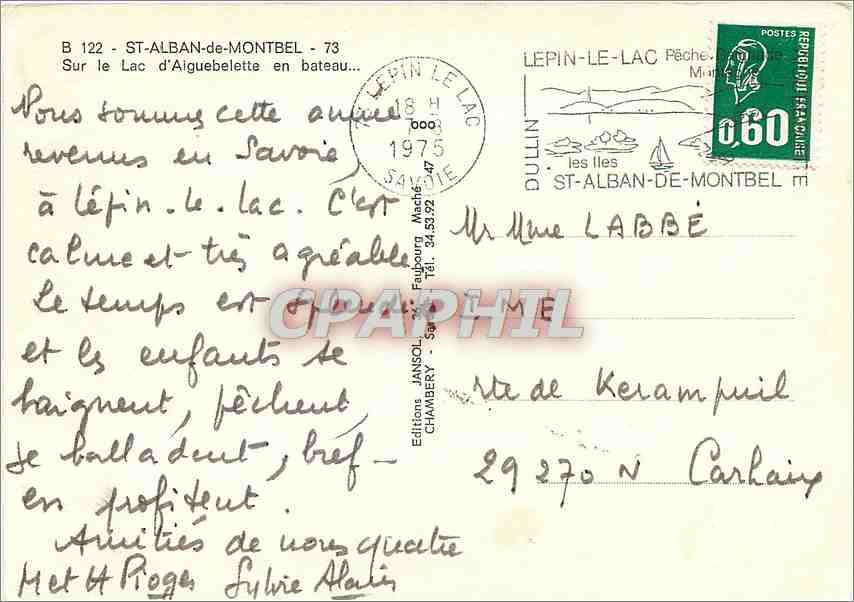 B 122 - ST-ALBAN-de-MONTBEL - 73
Sur le Lac d'Aiguebelette en bateau...
Nous somme cette année
revenus en Savoie,
à Lépin-le-lac. C'est
calme et très agréable
Le temps est splendide
et les enfants se
baignent, pêchent,
se balladent, bref -
en profitent.
Amitiés de nous quatre
M et H Pioges Sylvie Alain
Editions JANSOL, 36, Faubourg Maché
CHAMBERY - Tél. 34.53.92 47
LEPIN LE LAC
18 H
1975
SAVOIE
LEPIN-LE-LAC Pêche
DULLIN
les Iles
ST-ALBAN-DE-MONTBEL
POSTES
REPUBLIQUE FRANÇAISE
0,60
Mr Mme LABBÉ
IME
rte de Kerampuil
29270 N Carhaix
CPAPHIL